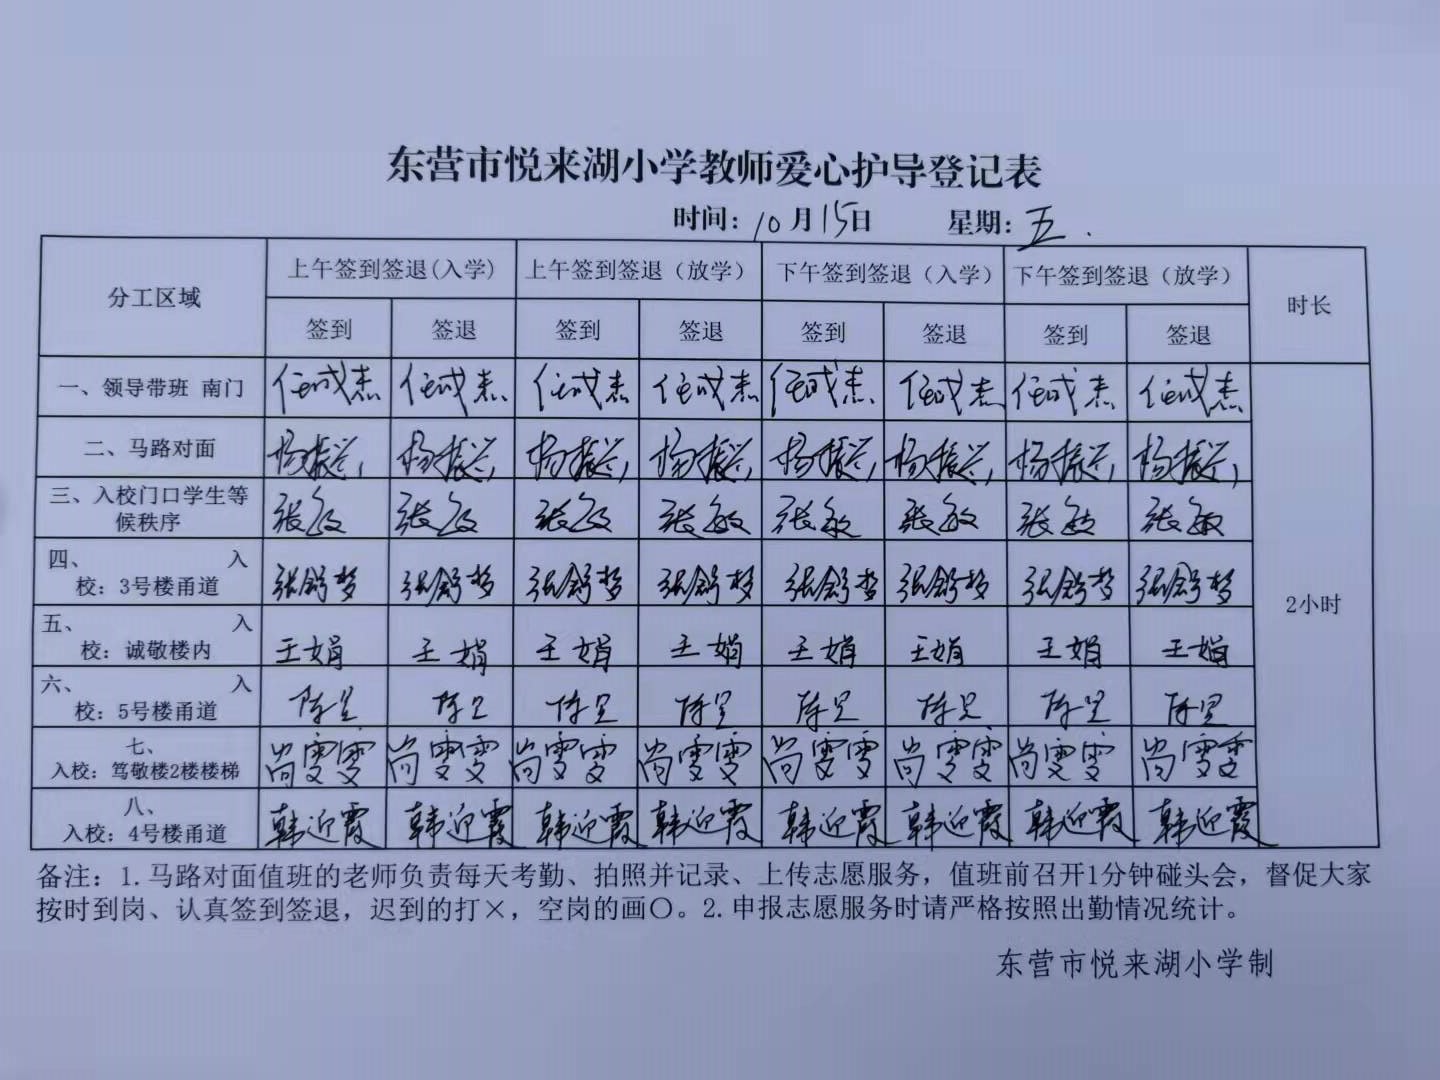 东营市悦来湖小学教师爱心护导登记表
时间：10月15日 星期：五.
分工区域 上午签到签退(入学) 上午签到签退（放学） 下午签到签退（入学） 下午签到签退（放学） 时长
签到 签退 签到 签退 签到 签退 签到 签退
一、领导带班 南门 任成杰 任成杰 任成杰 任成杰 任成杰 任成杰 任成杰 任成杰
二、马路对面 杨振兰 杨振兰 杨振兰 杨振兰 杨振兰 杨振兰 杨振兰 杨振兰
三、入校门口学生等
候秩序 张敏 张敏 张敏 张敏 张敏 张敏 张敏 张敏
四、 入
校：3号楼甬道 张舒梦 张舒梦 张舒梦 张舒梦 张舒梦 张舒梦 张舒梦 张舒梦
2小时
五、 入
校：诚敬楼内 王娟 王娟 王娟 王娟 王娟 王娟 王娟 王娟
六、 入
校：5号楼甬道 陈 陈 陈 陈 陈 陈 陈 陈
七、
入校：笃敬楼2楼楼梯 尚雯雯 尚雯雯 尚雯雯 尚雯雯 尚雯雯 尚雯雯 尚雯雯 尚雯雯
八、
入校：4号楼甬道 韩迎霞 韩迎霞 韩迎霞 韩迎霞 韩迎霞 韩迎霞 韩迎霞 韩迎霞
备注：1.马路对面值班的老师负责每天考勤、拍照并记录、上传志愿服务，值班前召开1分钟碰头会，督促大家
按时到岗、认真签到签退，迟到的打×，空岗的画〇。2.申报志愿服务时请严格按照出勤情况统计。
东营市悦来湖小学制